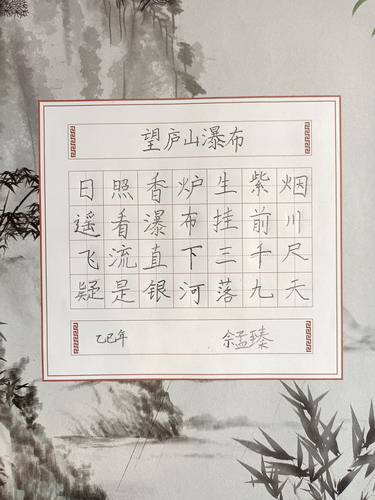 望庐山瀑布
日照香炉生紫烟
遥看瀑布挂前川
飞流直下三千尺
疑是银河落九天
乙巳年 佘孟臻